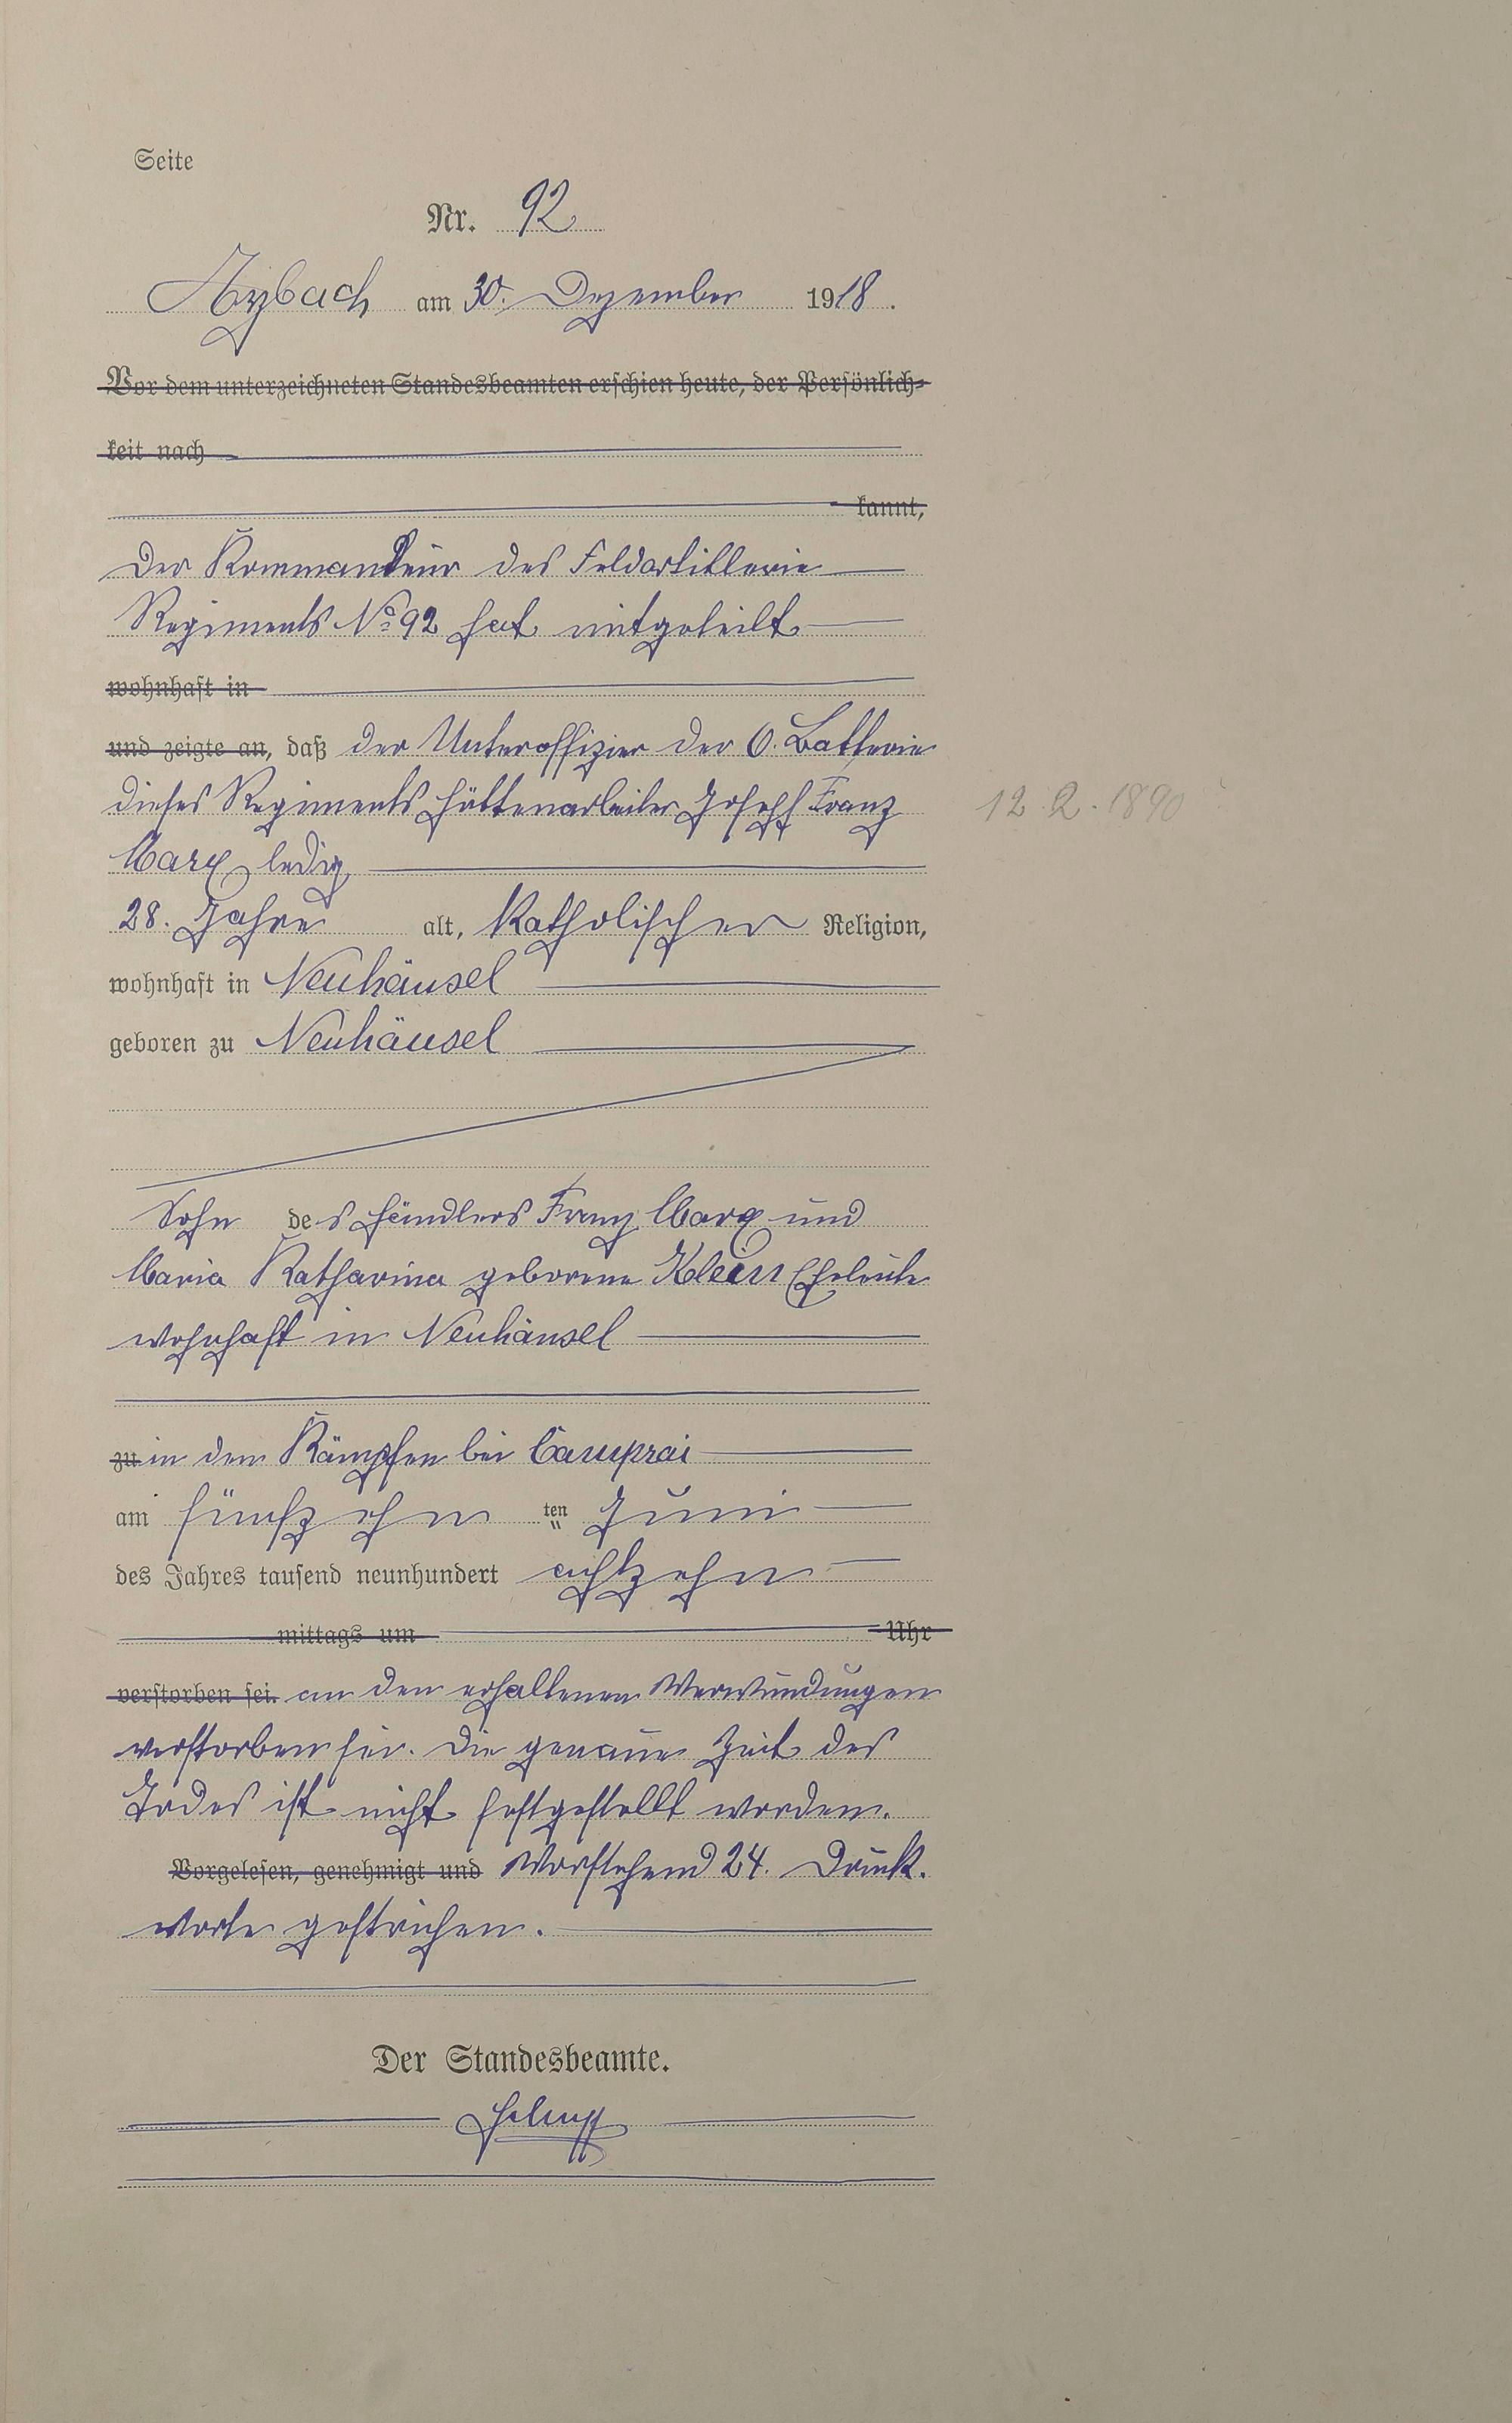 Seite
Nr. 92
Arzbach am 30. Dezember 1918.
Vor dem unterzeichneten Standesbeamten erschien heute, der Persönlich-
keit nach
kannt,
Der Kommandeur des Feldartillerie
Regiments No 92 hat mitgeteilt
wohnhaft in
und zeigte an, daß der Unteroffizier der 6. Batterie
dieses Regiments Hüttenarbeiter Joseph Franz
12.2.1890
Marx ledig
28. Jahre alt, Katholischer Religion,
wohnhaft in Neuhäusel
geboren zu Neuhäusel
Sohn des Händlers Franz Marx und
Maria Katharina geborene Klein Eheleute
wohnhaft in Neuhäusel
zu in den Kämpfen bei Camprai
am fünfzehn ten Juni
des Jahres tausend neunhundert achtzehn
mittags um Uhr
verstorben sei. an den erhaltenen Verwundungen
verstorben sei. Die genaue Zeit des
Todes ist nicht festgestellt worden.
Vorgelesen, genehmigt und Vorstehend 24. Druck-
worte gestrichen.
Der Standesbeamte.